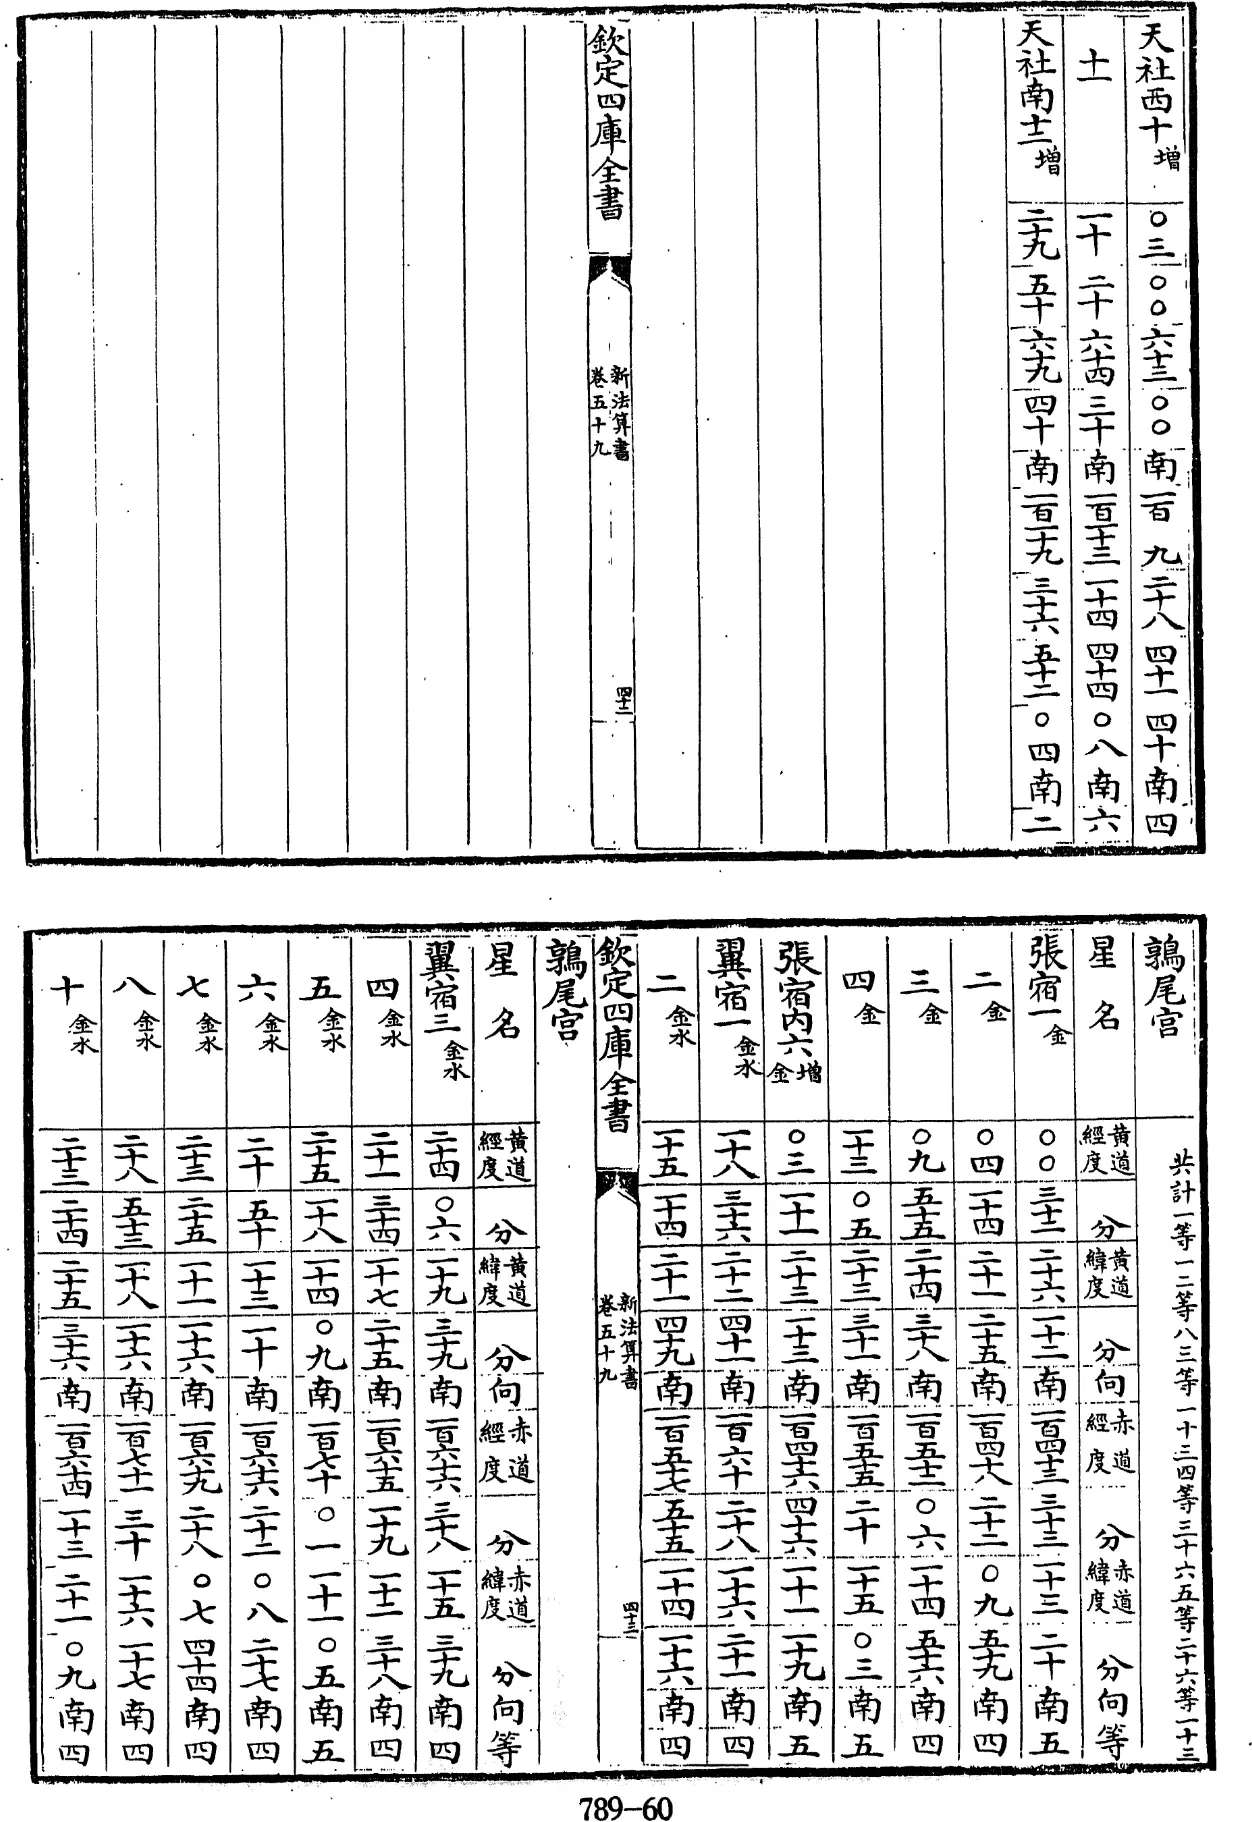 天社西十增 〇三 〇〇 六十三 〇〇 南 一百 九 二十八 四十一 四十 南 四
十一 一十 二十 六十四 三十 南 一百一十三 一十四 四十四 〇八 南 六
天社南十二增 二十九 五十 六十九 四十 南 一百一十九 三十六 五十二 〇四 南 二
欽定四庫全書
新法算書
卷五十九
四十二
鶉尾宫 共計一等一二等八三等一十三四等三十六五等二十六等一十三
星名 黄道經度 分 黄道緯度 分 向 赤道經度 分 赤道緯度 分 向 等
張宿一金 〇〇 三十一 二十六 一十二 南 一百四十三 三十三 一十三 二十 南 五
二金 〇四 一十四 二十一 二十五 南 一百四十八 二十二 〇九 五十九 南 四
三金 〇九 五十五 二十四 三十八 南 一百五十一 〇六 一十四 五十六 南 四
四金 一十三 〇五 二十三 三十一 南 一百五十五 二十 一十五 〇三 南 五
張宿内六增金 〇三 一十一 二十三 一十三 南 一百四十六 四十六 一十一 一十九 南 五
翼宿一金水 一十八 三十六 二十二 四十一 南 一百六十 二十八 一十六 二十一 南 四
二金水 一十五 一十四 二十一 四十九 南 一百五十七 五十五 一十四 一十六 南 四
欽定四庫全書
新法算書
卷五十九
四十三
鶉尾宫
星名 黄道經度 分 黄道緯度 分 向 赤道經度 分 赤道緯度 分 向 等
翼宿三金水 二十四 〇六 一十九 三十九 南 一百六十六 三十八 一十五 三十九 南 四
四金水 二十一 三十四 一十七 二十五 南 一百六十五 一十九 一十二 三十八 南 四
五金水 二十五 一十八 一十四 〇九 南 一百七十 〇一 一十一 〇五 南 五
六金水 二十 五十 一十三 一十 南 一百六十六 二十二 〇八 二十七 南 四
七金水 二十三 二十五 一十一 一十六 南 一百六十九 二十八 〇七 四十四 南 四
八金水 二十八 五十三 一十八 一十六 南 一百七十一 三十 一十六 一十七 南 四
十金水 二十三 二十四 二十五 三十六 南 一百六十四 一十三 二十一 〇九 南 四
789-60